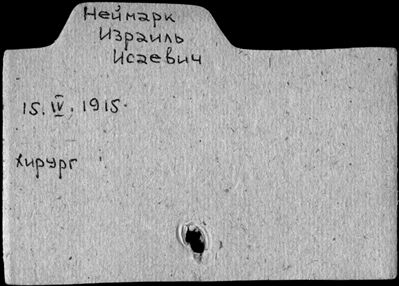 Неймарк
Израиль
Исаевич
15.IV.1915.
хирург